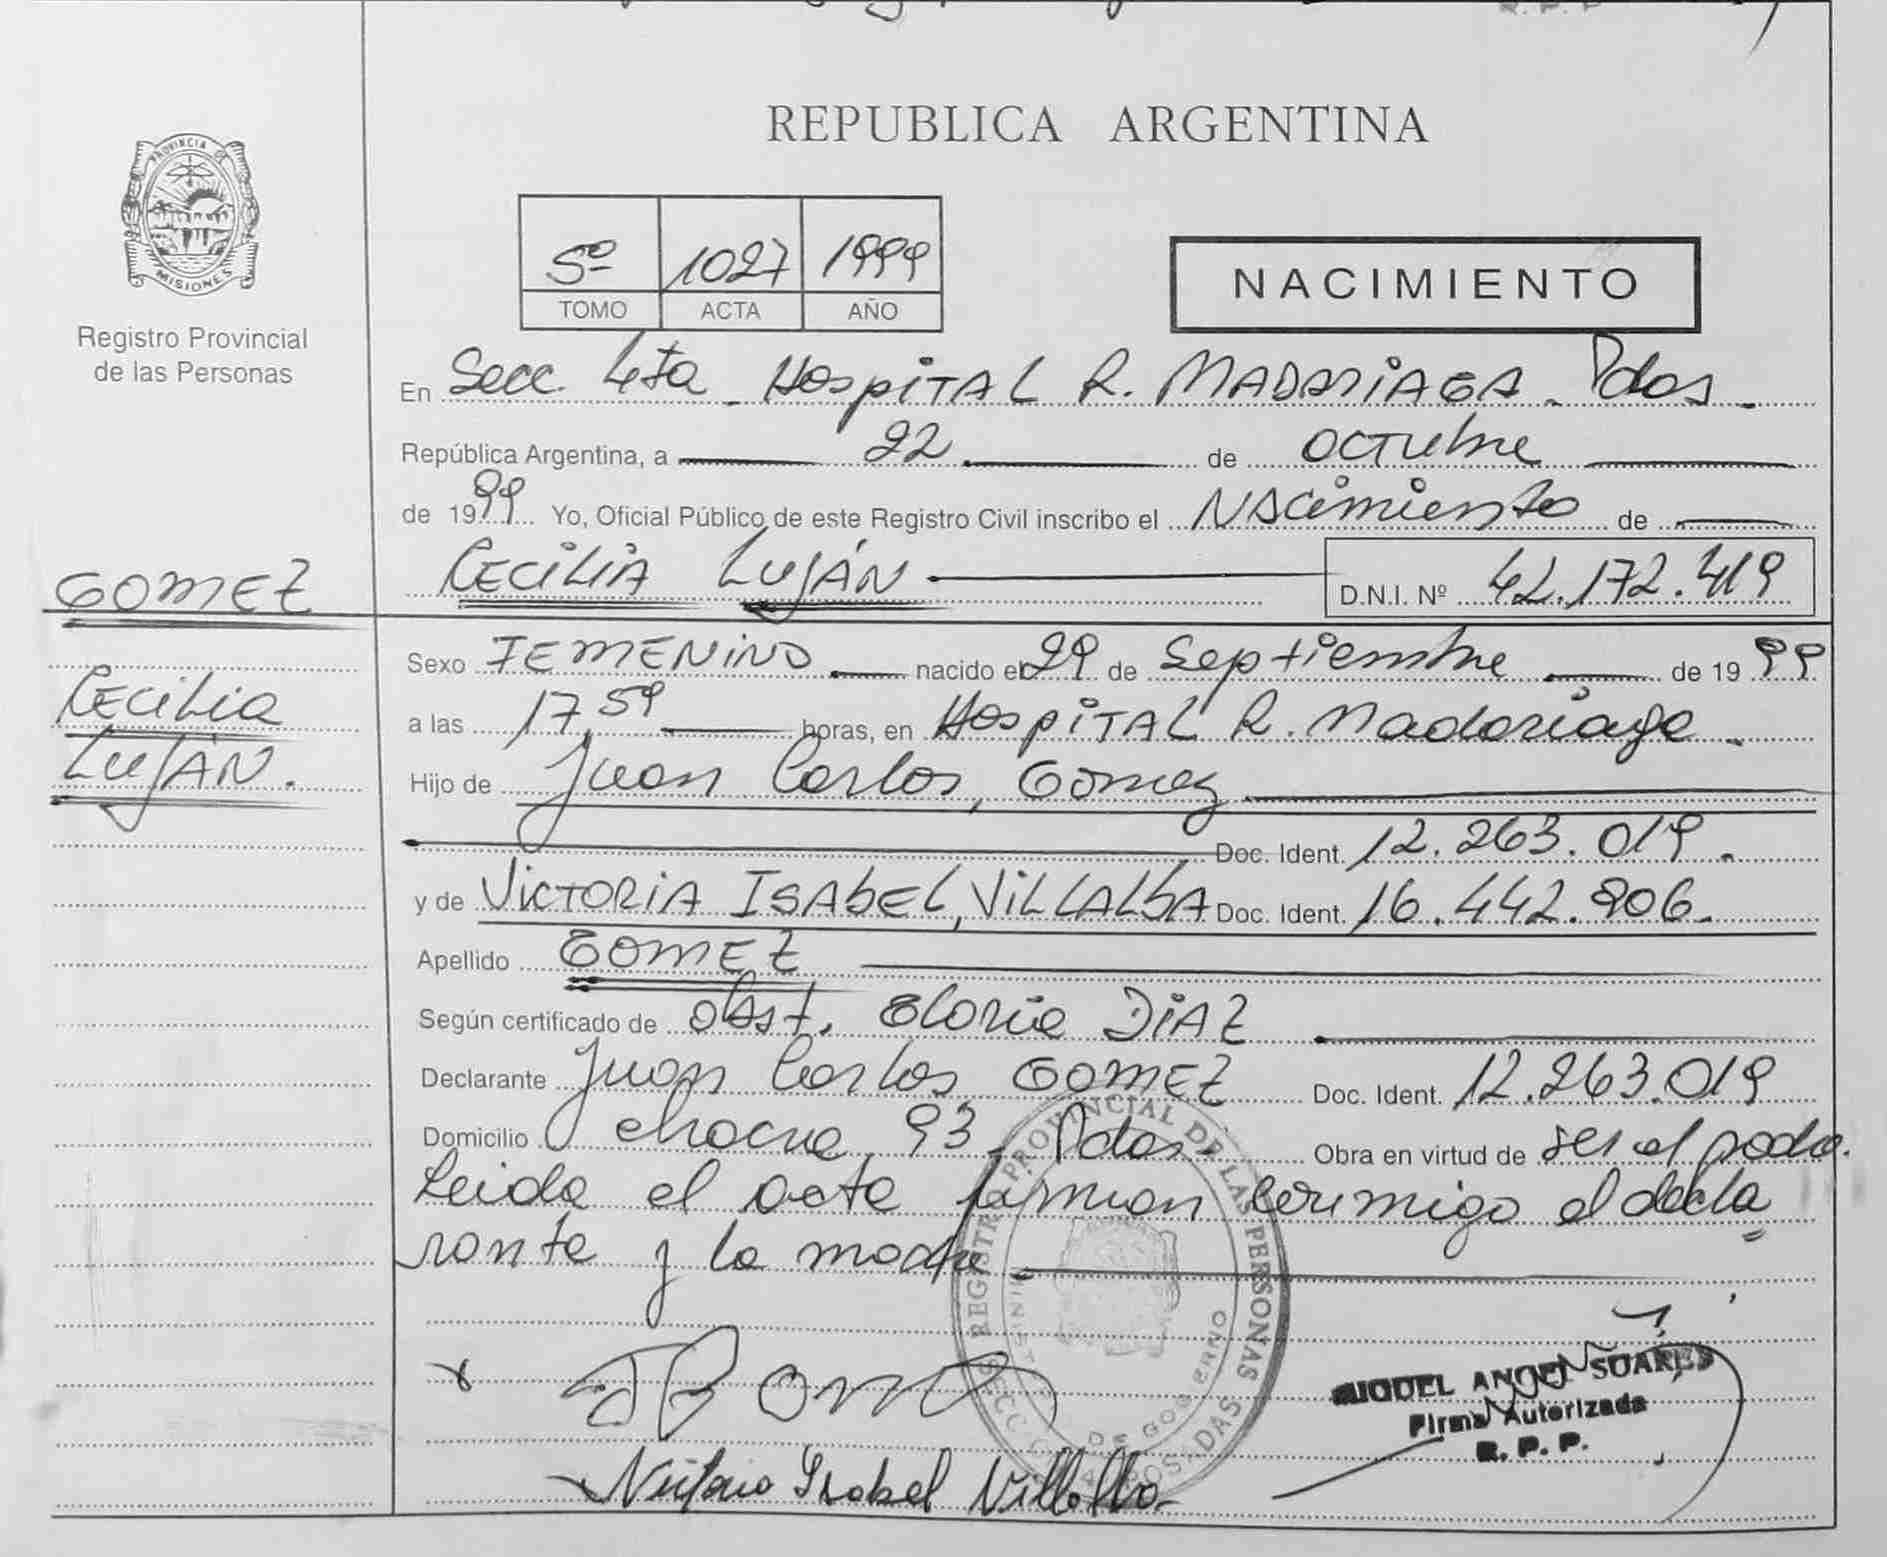 REPUBLICA ARGENTINA
PROVINCIA DE
MISIONES
Registro Provincial
de las Personas
5º 1027 1999
TOMO ACTA AÑO
NACIMIENTO
En Secc. 4ta. Hospital R. Madariaga. Pdas.
República Argentina, a 22 de octubre
de 1999 Yo, Oficial Público de este Registro Civil inscribo el Nacimiento de
Cecilia Luján D.N.I. Nº 42.172.419
GOMEZ
Cecilia
Luján.
Sexo Femenino nacido el 29 de Septiembre de 1999
a las 17,59 horas, en Hospital R. Madariaga.
Hijo de Juan Carlos, Gomez
Doc. Ident. 12.263.019.
y de Victoria Isabel, Villalba Doc. Ident. 16.442.906.
Apellido GOMEZ
Según certificado de obst. Gloria Diaz
Declarante Juan Carlos GOMEZ Doc. Ident. 12.263.019
Domicilio chacra 93, Pdas. Obra en virtud de ser el padre.
Leida el acta firman conmigo el decla
rante y la madre
REGISTRO PROVINCIAL DE LAS PERSONAS
POSADAS
Victoria Isabel Villalba
MIGUEL ANGEL SUARES
Firma Autorizada
R. P. P.